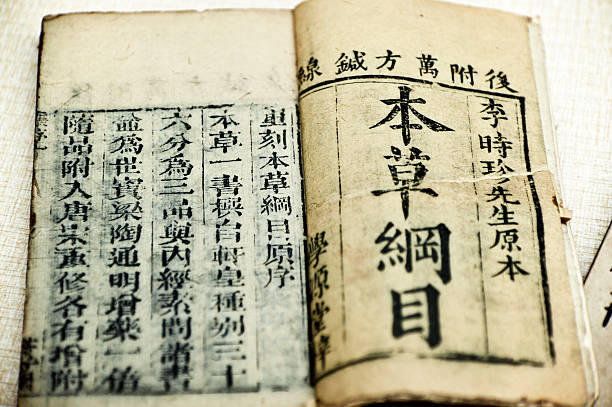 後附萬方鍼線
李時珍先生原本
本草綱目
學源堂
重刻本草綱目原序
本草一書撰自軒皇種別三十
六分為三品與內經素問諸書
並為世寶梁陶通明增藥一倍
隨品附入唐宋重修各有增附